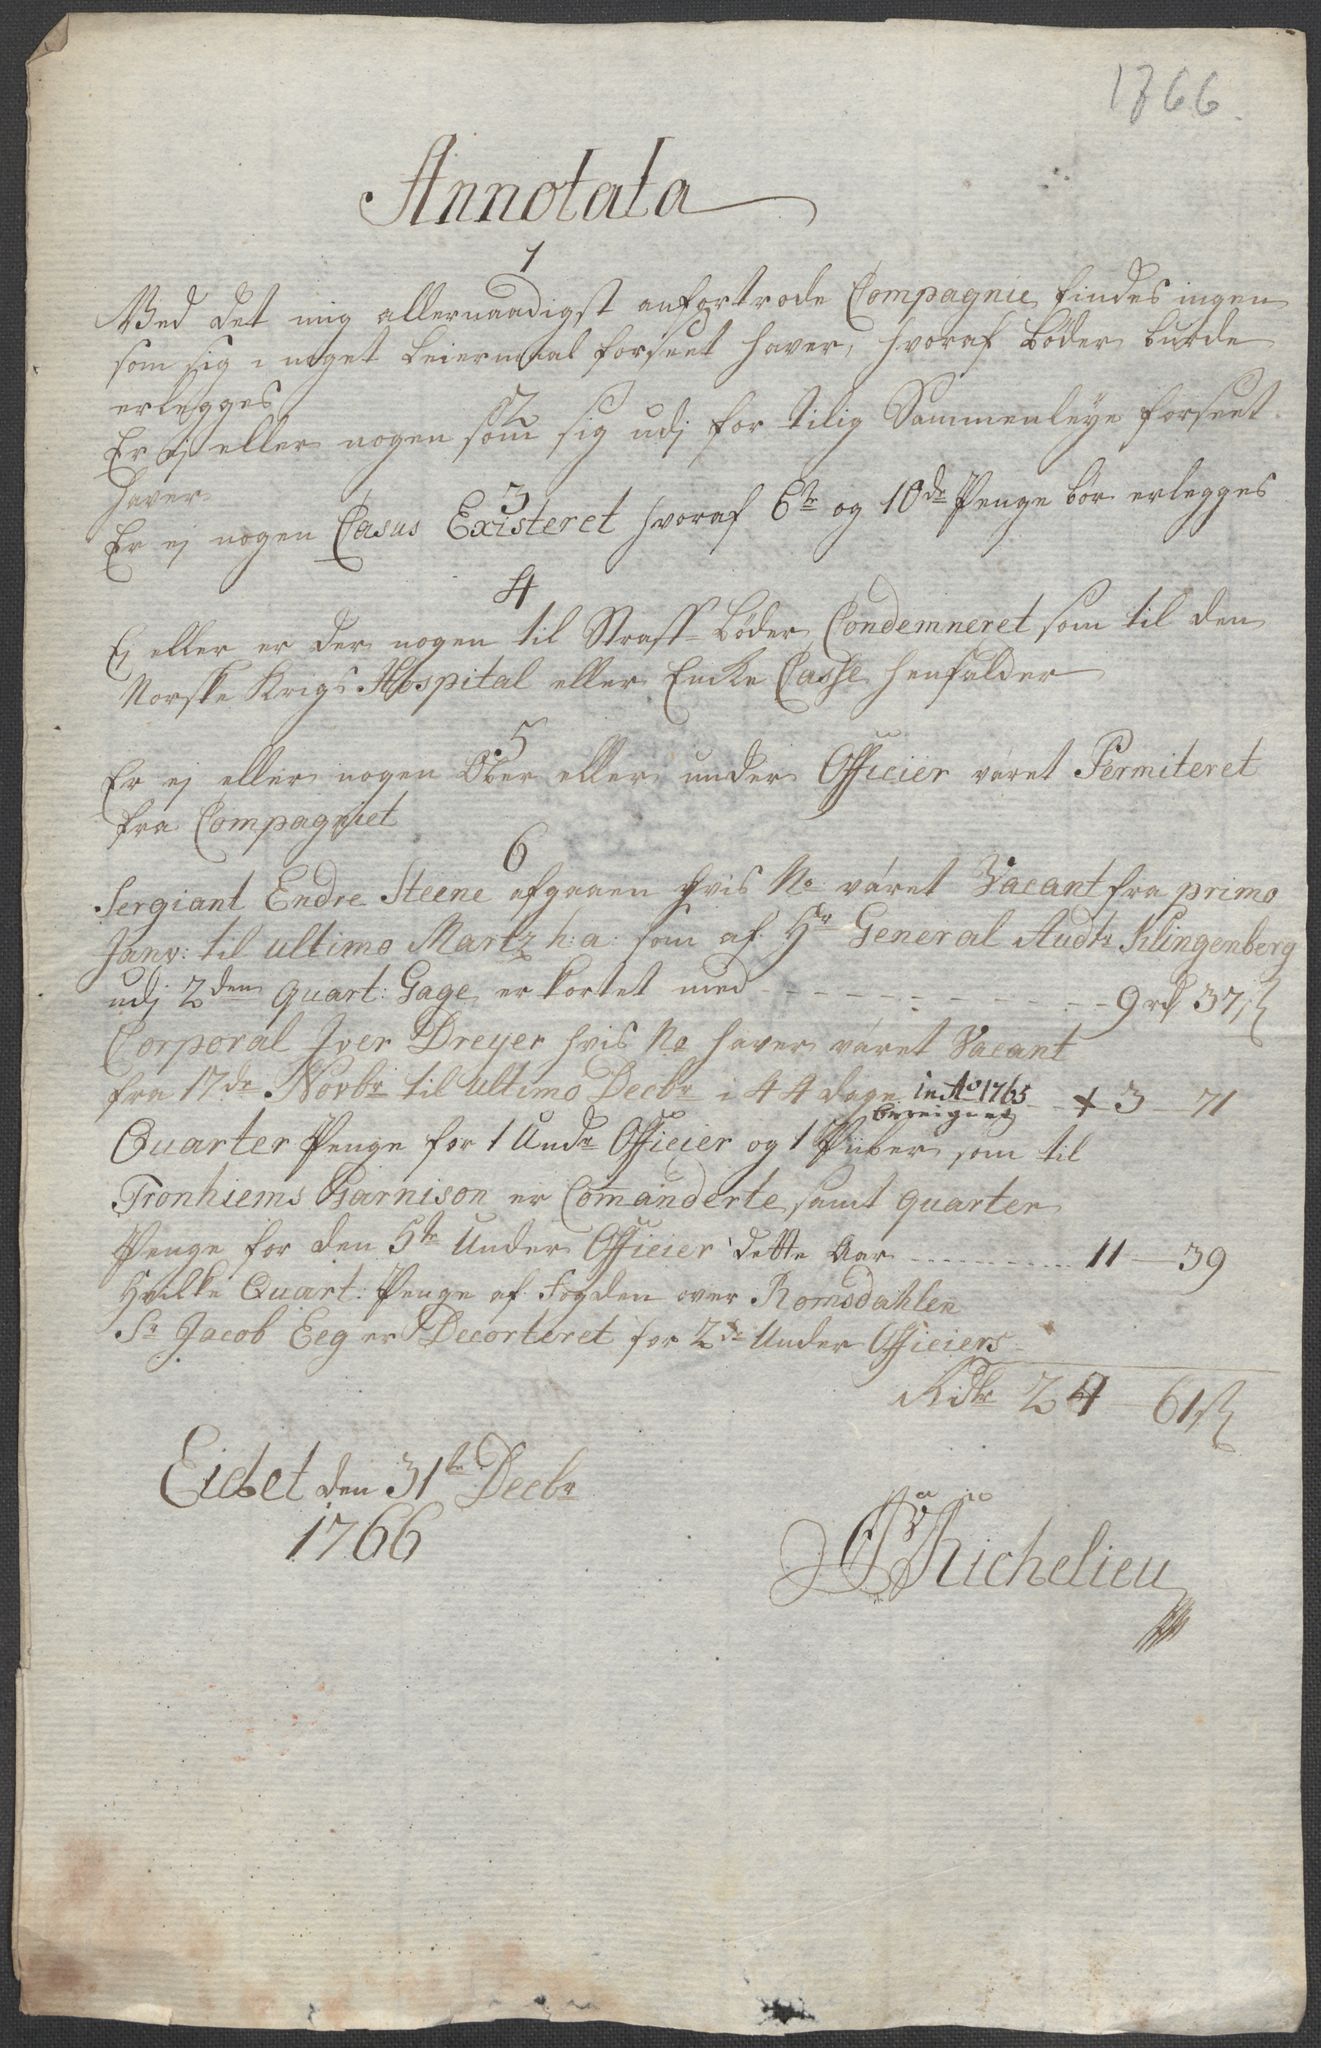 1766.
Annotata
1
Ved det mig allernaadigst anfortrode Compagnie findes ingen
som sig i noget Leiermaal forseet haver, hvoraf Böder burde
erlegges
2
Er ej eller nogen som sig udj for tilig Sammenleye forseet
haver
3
Er ej nogen Casus Existeret hvoraf 6te og 10de Penge bör erlegges
4
Ej eller er der nogen til Straff-Böder Condemneret som til den
Norske Krigs Hospital eller Encke Casse henfalder
5
Er ej eller nogen Ober eller under Officier väret Permiteret
fra Compagniet
6
Sergiant Endre Steene afgaaen hvis No väret Vacant fra primo
Janv: til ultimo Martz h: a: som af Hr General Audtr Klingenberg
udj 2den Quart: Gage er kortet med - - - - - - - - - - 9 rd 37 ß
Corporal Iver Dreyer hvis No haver väret Vacant
fra 17de Novbr til ultimo Decbr i 44 dage in Ao 1765 - - + 3 - 71
bereignet
Quarter Penge for 1 Undr Officier og 1 Piiber som til
Tronhiems Garnison er Comanderte, samt quarter
Penge for den 5te Under Officier dette Aar .......... 11 - 39
Hvilke Quart: Penge af Fogden over Romsdahlen
Sr Jacob Eeg er Decorteret for 2de Under Officiers
Rdlr 24 - 61 ß
Eidet den 31te Decbr
1766
Richelieu